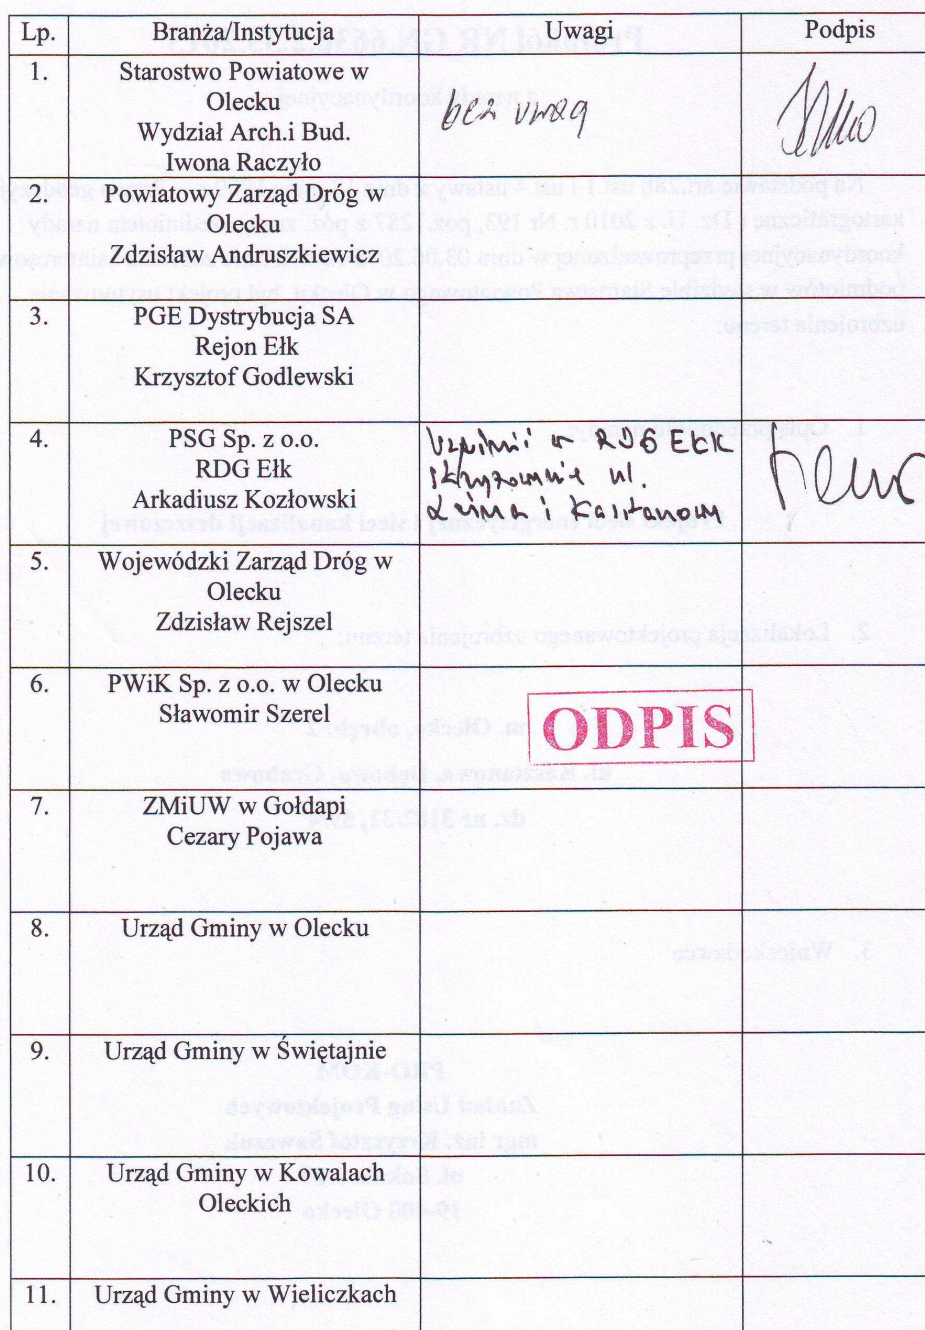 Lp. Branża/Instytucja Uwagi Podpis
1. Starostwo Powiatowe w
Olecku
Wydział Arch.i Bud.
Iwona Raczyło
bez uwag
2. Powiatowy Zarząd Dróg w
Olecku
Zdzisław Andruszkiewicz
3. PGE Dystrybucja SA
Rejon Ełk
Krzysztof Godlewski
4. PSG Sp. z o.o.
RDG Ełk
Arkadiusz Kozłowski
Uzgodnić w RDG EŁK
skrzyżowanie ul.
Leśna i Kasztanowa
5. Wojewódzki Zarząd Dróg w
Olecku
Zdzisław Rejszel
6. PWiK Sp. z o.o. w Olecku
Sławomir Szerel
ODPIS
7. ZMiUW w Gołdapi
Cezary Pojawa
8. Urząd Gminy w Olecku
9. Urząd Gminy w Świętajnie
10. Urząd Gminy w Kowalach
Oleckich
11. Urząd Gminy w Wieliczkach